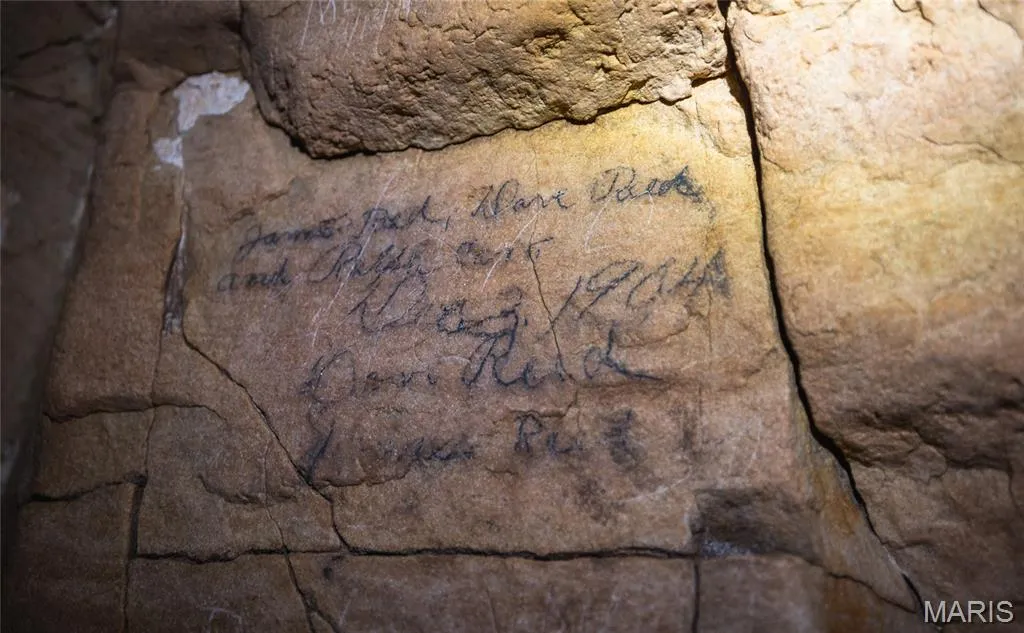 James Reed, Dave Reed,
and Ralph
1904
Dave Reed
James Reed
MARIS